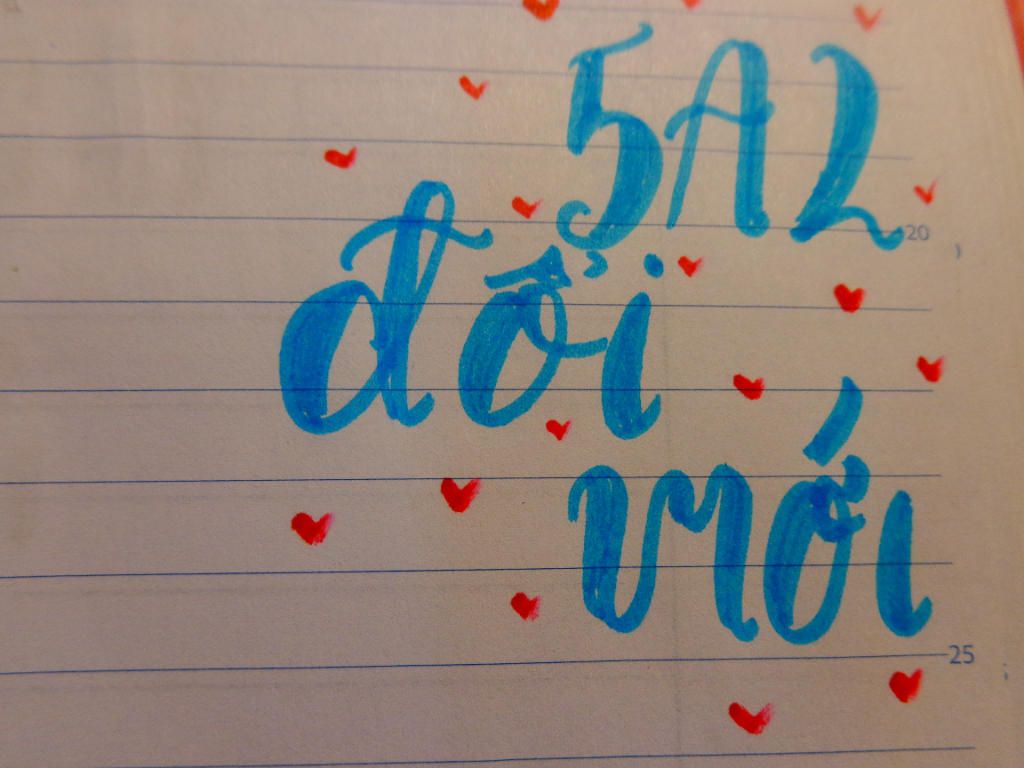 5A2
20
đổi
mới
25